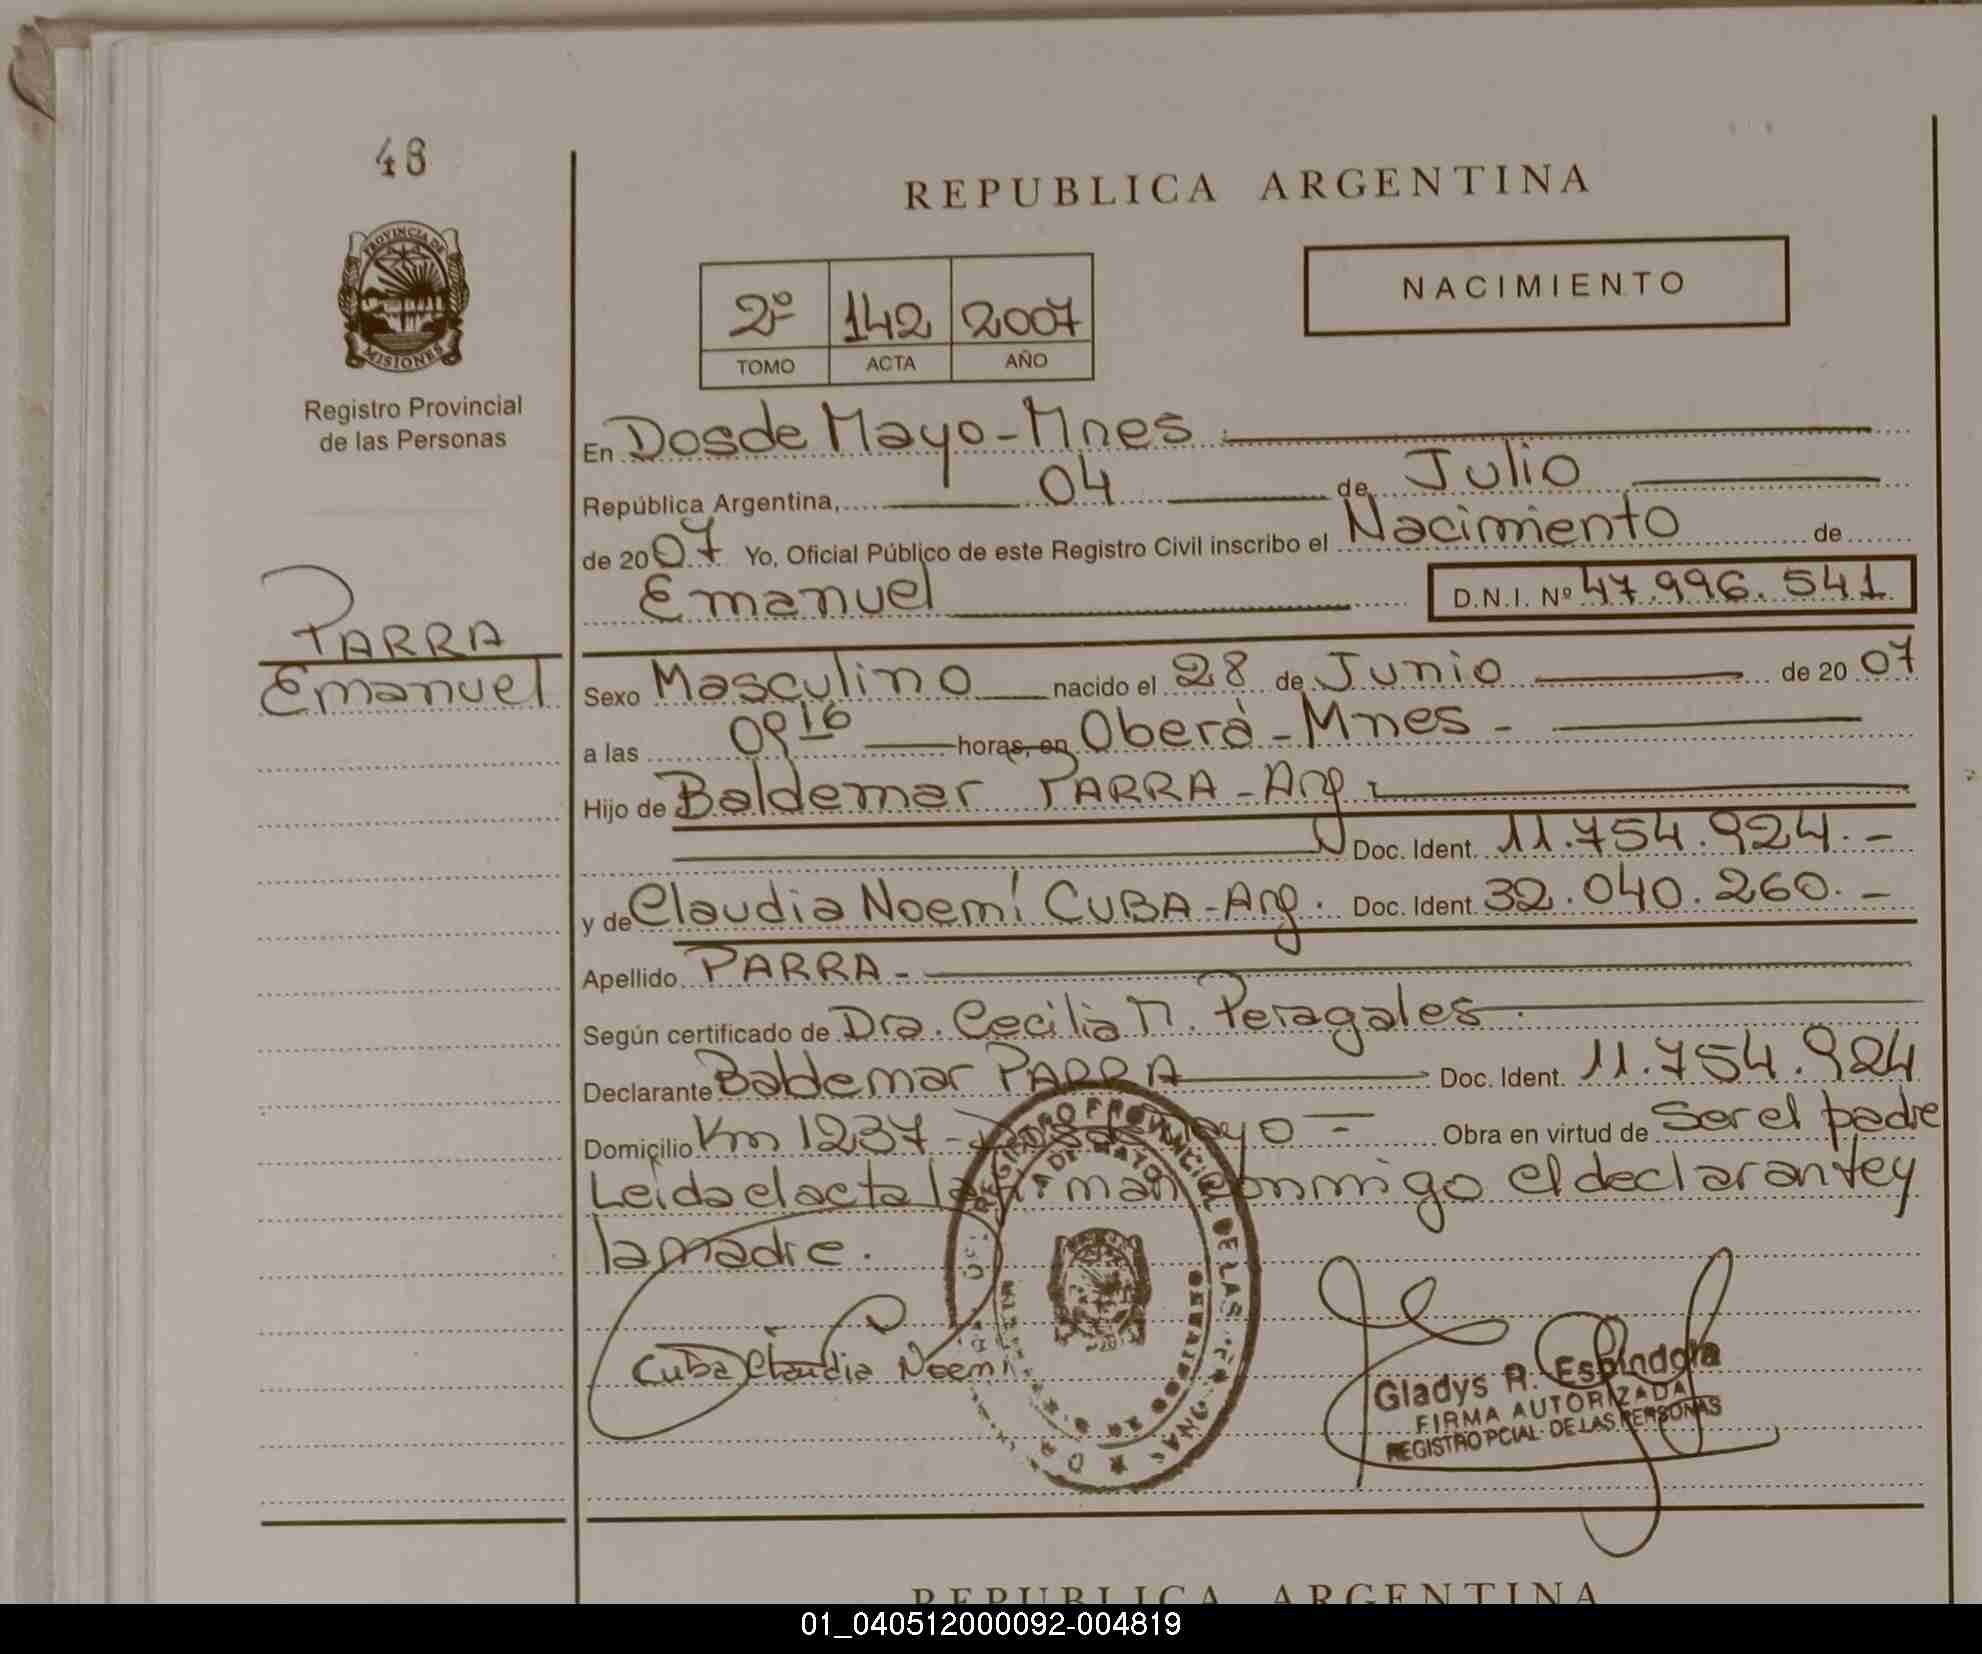 48
PROVINCIA DE
MISIONES
Registro Provincial
de las Personas
PARRA
Emanuel
REPUBLICA ARGENTINA
2º 142 2007
TOMO ACTA AÑO
NACIMIENTO
En Dos de Mayo - Mnes
República Argentina, 04 de Julio
de 2007 Yo, Oficial Público de este Registro Civil inscribo el Nacimiento de
Emanuel D.N.I. Nº 47.996.541
Sexo Masculino nacido el 28 de Junio de 2007
a las 09 16 horas, en Oberá - Mnes -
Hijo de Baldemar PARRA - Arg.
Doc. Ident. 11.754.924.-
y de Claudia Noemí CUBA - Arg. Doc. Ident. 32.040.260.-
Apellido PARRA -
Según certificado de Dra. Cecilia M. Peragales
Declarante Baldemar PARRA Doc. Ident. 11.754.924
Domicilio Km 1237 - Dos de Mayo - Obra en virtud de Ser el padre
Leida el acta la firman conmigo el declarante y
la madre.
Cuba Claudia Noemi
REGISTRO PROVINCIAL DE LAS
Gladys R. Espindola
FIRMA AUTORIZADA
REGISTRO PCIAL. DE LAS PERSONAS
REPUBLICA ARGENTINA
01_040512000092-004819